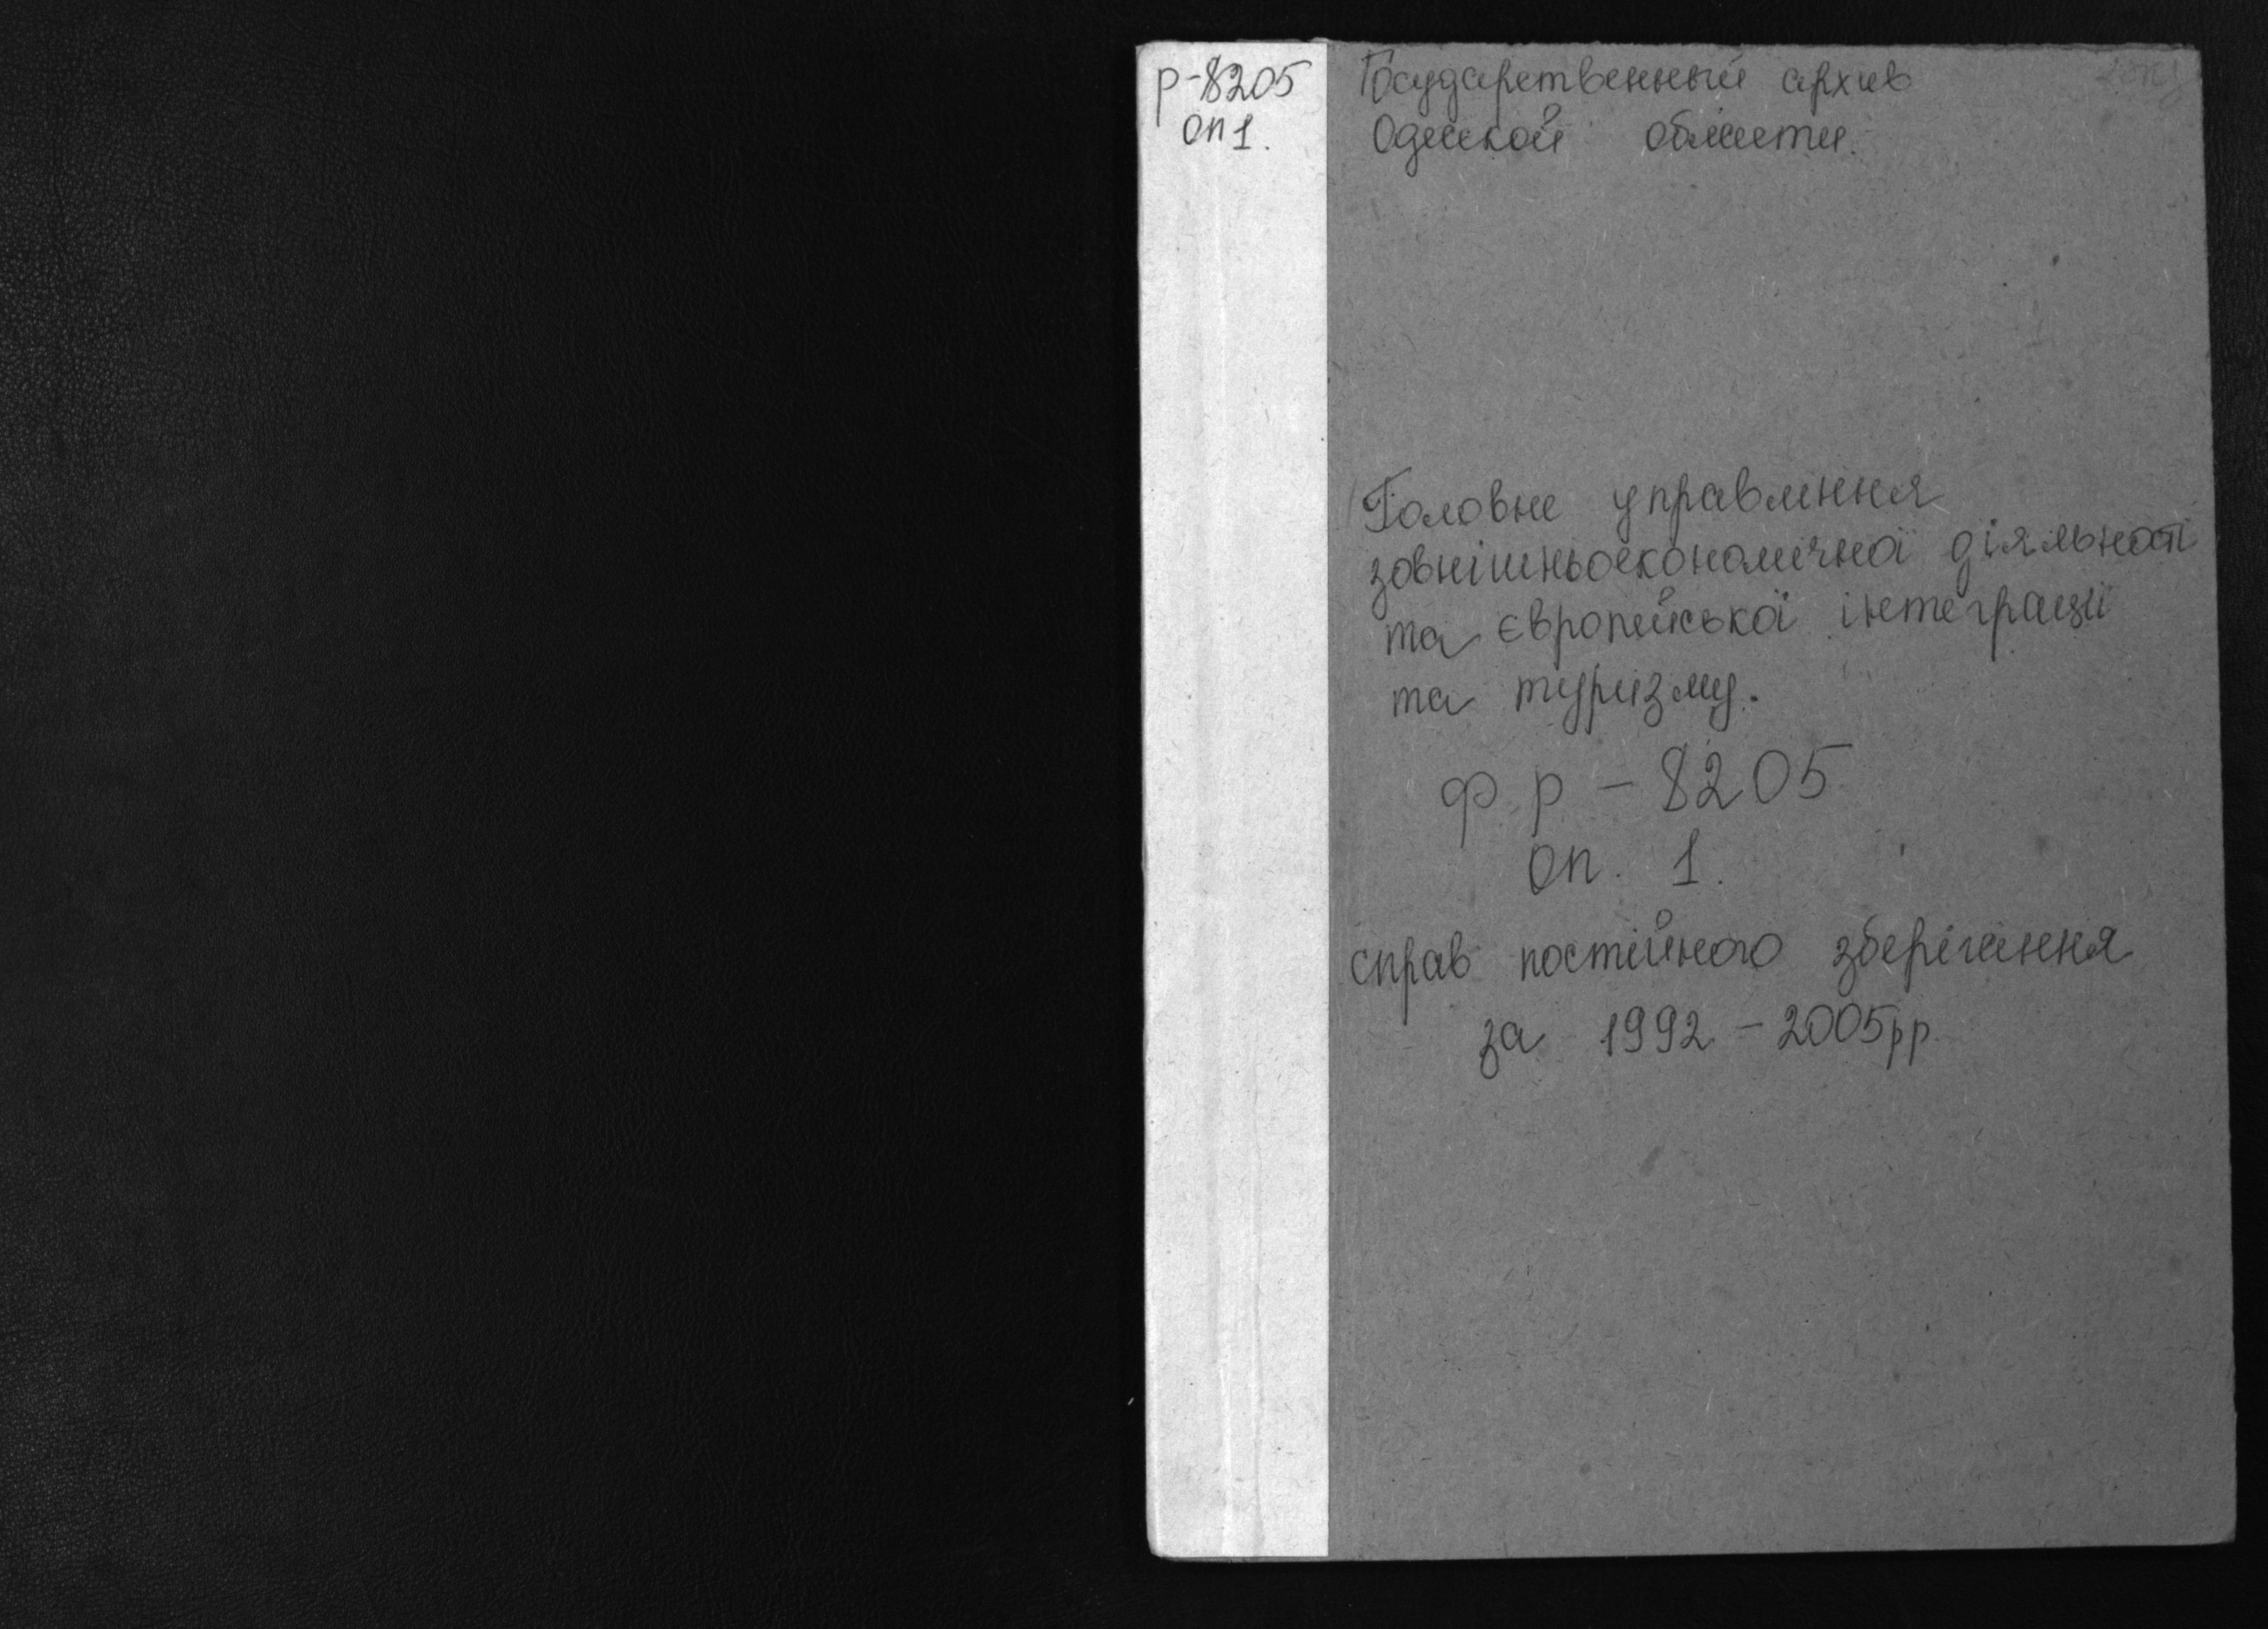 р-8205
оп 1.
Государственный архив
Одесской области.
Головне управління
зовнішньоекономічної діяльності
та європейської інтеграції
та туризму.
ф р - 8205
оп. 1.
справ постійного зберігання
за 1992 - 2005рр.